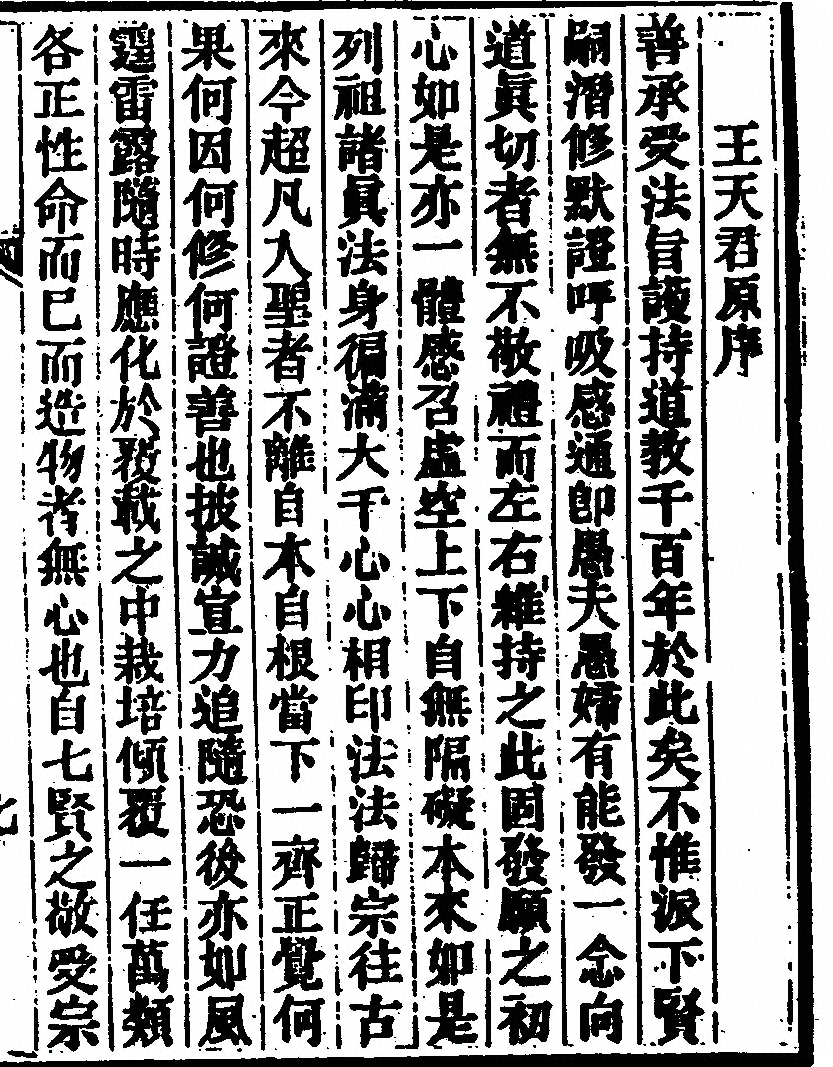 王天君原序
善承受法旨護持道教千百年於此矣不惟派下賢
嗣潛修默證呼吸感通卽愚夫愚婦有能發一念向
道眞切者無不敬禮而左右維持之此固發願之初
心如是亦一體感召虛空上下自無隔礙本來如是
列祖諸眞法身徧滿大千心心相印法法歸宗往古
來今超凡入聖者不離自本自根當下一齊正覺何
果何因何修何證善也披誠宣力追隨恐後亦如風
霆雷露隨時應化於覆載之中栽培傾覆一任萬類
各正性命而已而造物者無心也自七賢之敬受宗